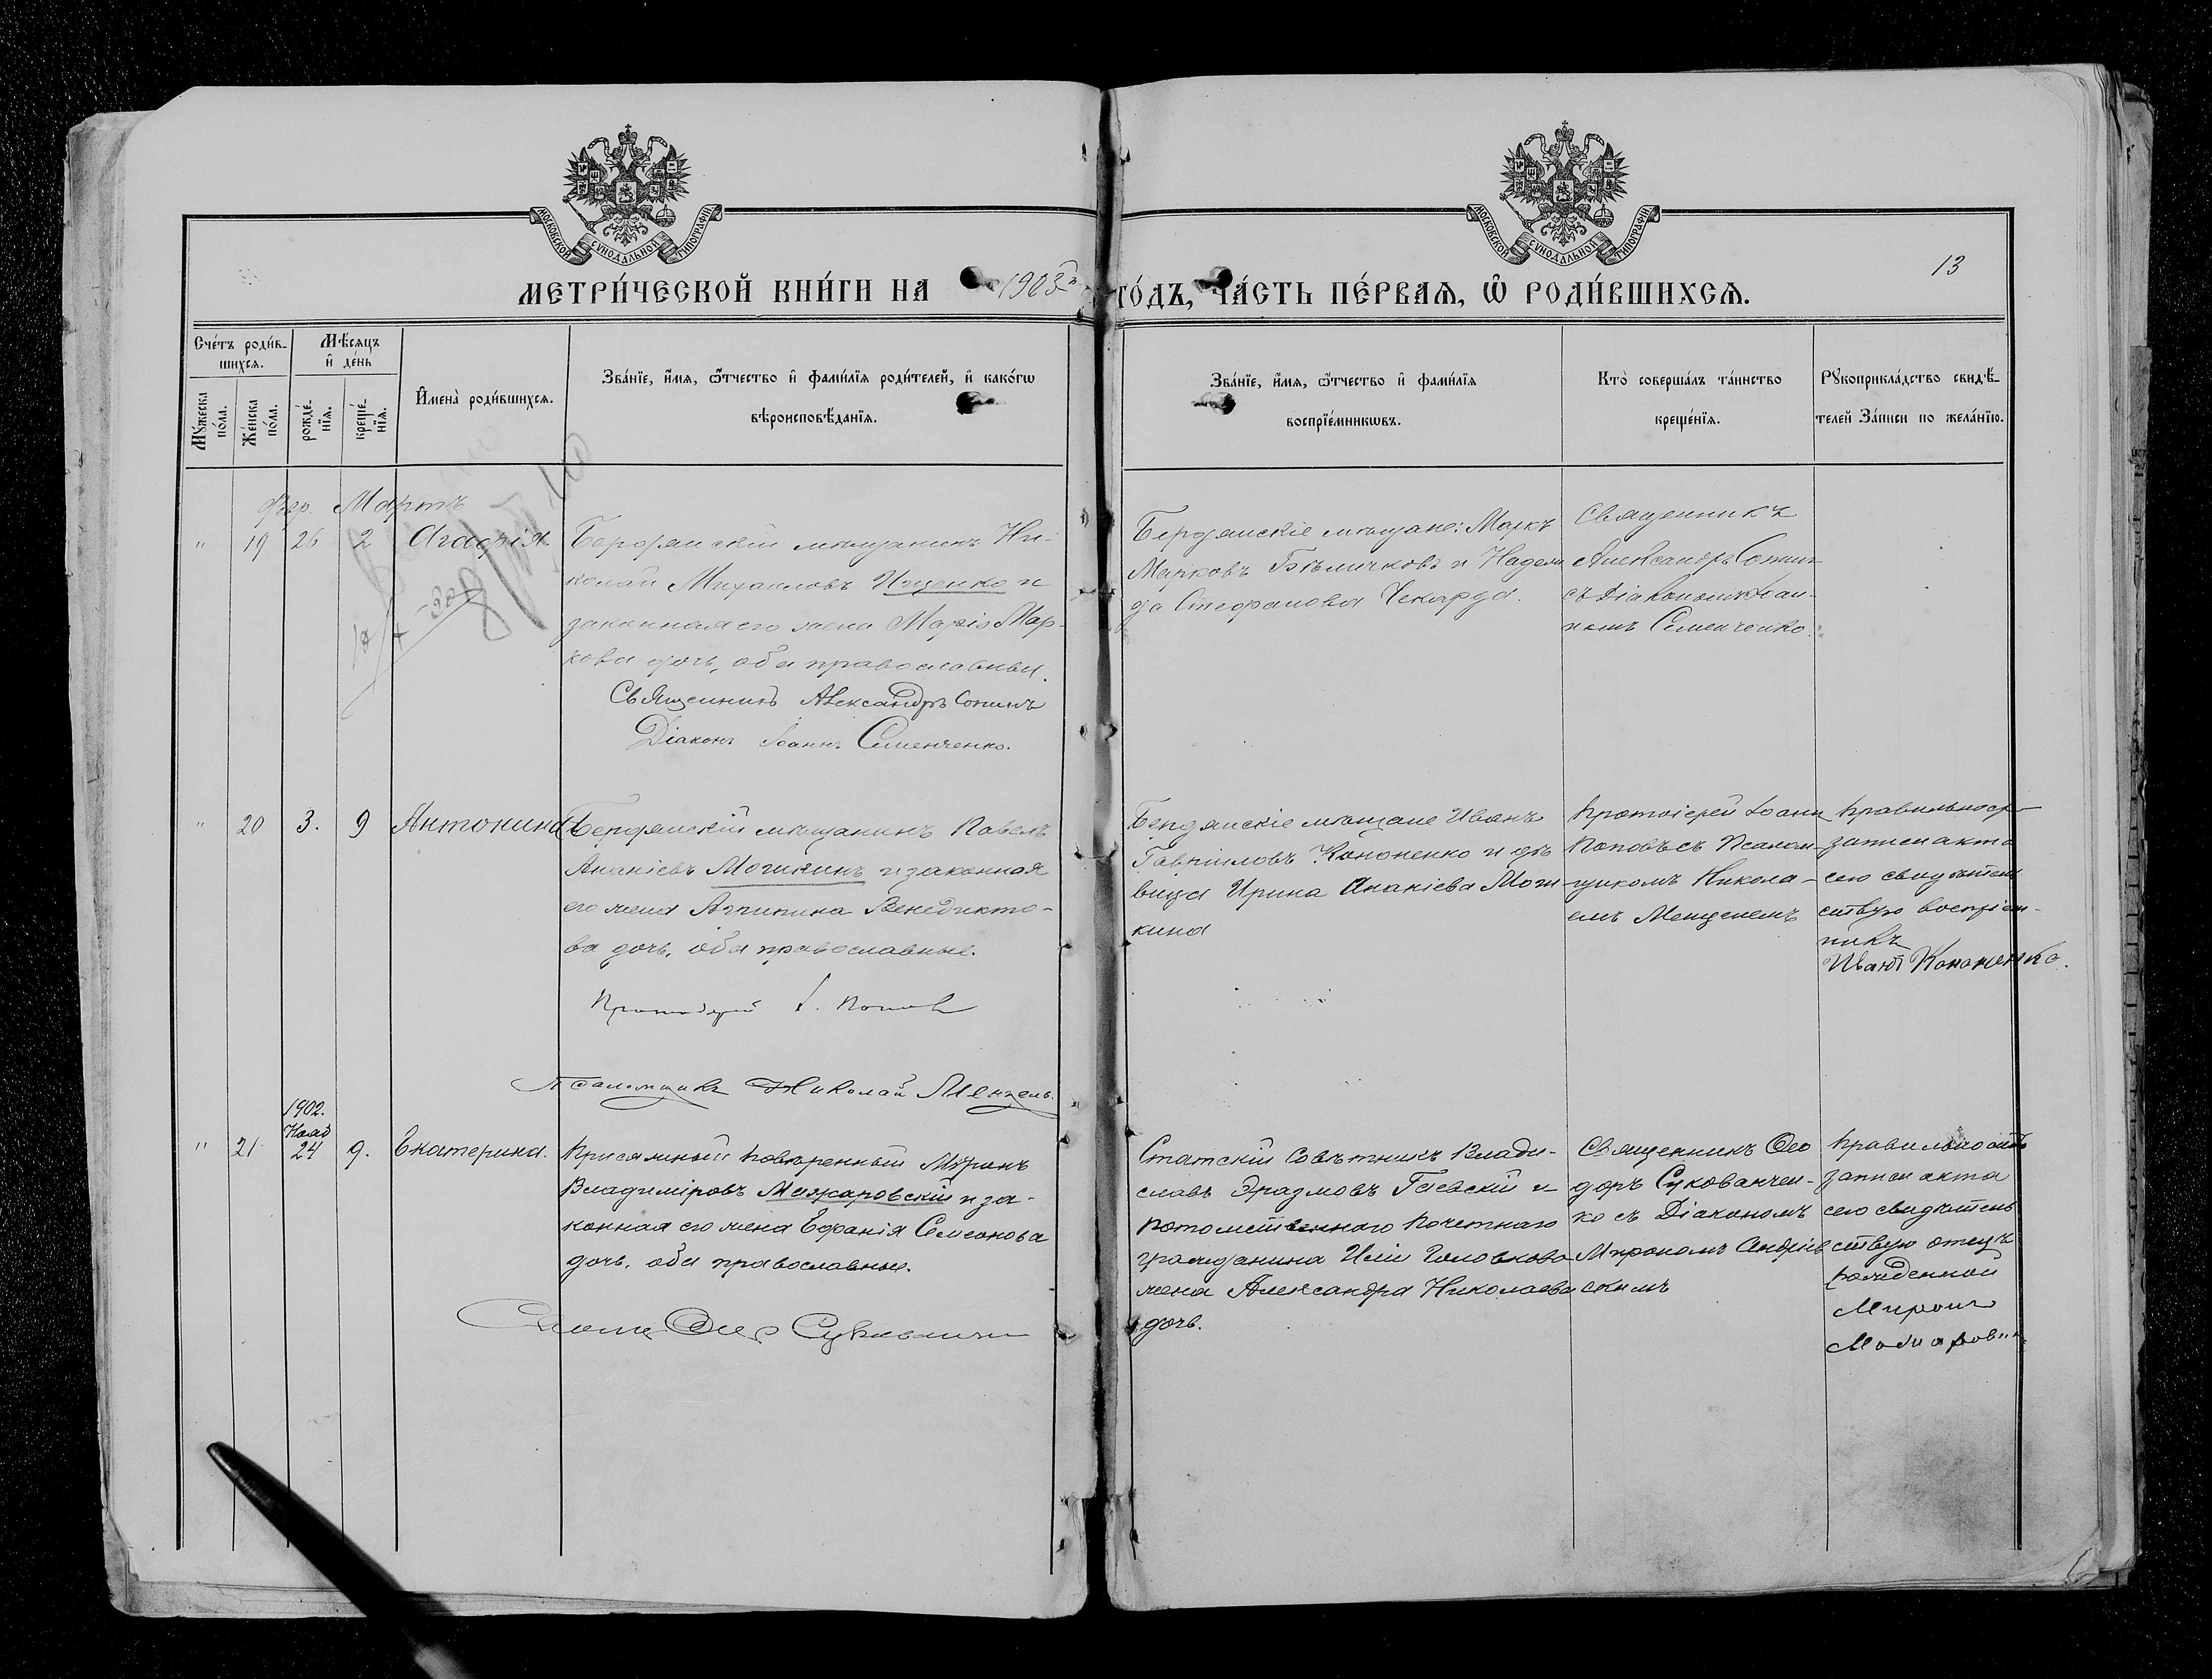 МОСКОВСКОЙ СѴНОДАЛЬНОЙ ТИПОГРАФІИ
МОСКОВСКОЙ СѴНОДАЛЬНОЙ ТИПОГРАФІИ
13
МЕТРИ́ЧЕСКОЙ КНИ́ГИ НА 1903й ГО́ДЪ, ЧА́СТЬ ПЕ́РВАѦ, Ѡ҆ РОДИ́ВШИХСѦ.
Сче́тъ роди́в-
шихсѧ.
Мꙋ́жеска по́ла.
Же́нска по́ла.
Мѣ́сѧцъ
и҆ де́нь
рожде́-
нїѧ.
креще́-
нїѧ.
И҆мена̀ роди́вшихсѧ.
Зва́нїе, и҆́мѧ, ѻ҆́тчество и҆ фами́лїѧ роди́телей, и҆ како́гѡ
вѣроисповѣ́данїѧ.
Зва́нїе, и҆́мѧ, ѻ҆́тчество и҆ фами́лїѧ
воспрїе́мникѡвъ.
Кто̀ соверша́лъ та́инство
креще́нїѧ.
Рꙋкоприкла́дство свидѣ́-
телей За́писи по жела́нїю.
Февр. Мартъ
" 19 26 2 Агафія.
Бердянскій мѣщанинъ Ни-
колай Михаиловъ Ищенко и
законная его жена Марія Мар-
кова дочь, оба православны.
Священникъ Александръ Сопинъ
Діаконъ Іоаннъ Семенченко.
Бердянскіе мѣщане: Маркъ
Марковъ Бѣличковъ и Надеж
да Стефанова Чекарда.
Священникъ
Александръ Сопинъ
съ Діакономъ Іоан-
номъ Семенченко.
" 20 3. 9 Антонина
Бердянскій мѣщанинъ Павелъ
Ананіевъ Могикинъ и законная
его жена Агрипина Венедикто-
ва дочь, оба православные.
Протоіерей І. Поповъ
Псаломщикъ Николай Менцель.
Бердянскіе мѣщане Иванъ
Гавріиловъ Кононенко и дѣ
вица Ирина Ананіева Моги
кина
Протоіерей Іоаннъ
Поповъ съ Псалом-
щикомъ Никола-
емъ Менцелемъ
Правильность
записи акта
сего свидѣтель
ствую воспріем-
никъ
Иванъ Кононенко.
1902.
Нояб
" 21 24 9. Екатерина.
Присяжный повѣренный Миронъ
Владиміровъ Можаровскій и за-
конная его жена Ефанія Семеонова
дочь, оба православные.
Статскій Совѣтникъ Влади-
славъ Эразмовъ Гаевскій и
потомственнаго почетнаго
гражданина Иліи Головкова
жена Александра Николаева
дочь.
Священникъ Ѳео
доръ Сукованчен-
ко съ Діакономъ
Мирономъ Андріев
скимъ
Правильность
записи акта
сего свидѣтель
ствую отецъ
рожденной
Миронъ
Можаровскій